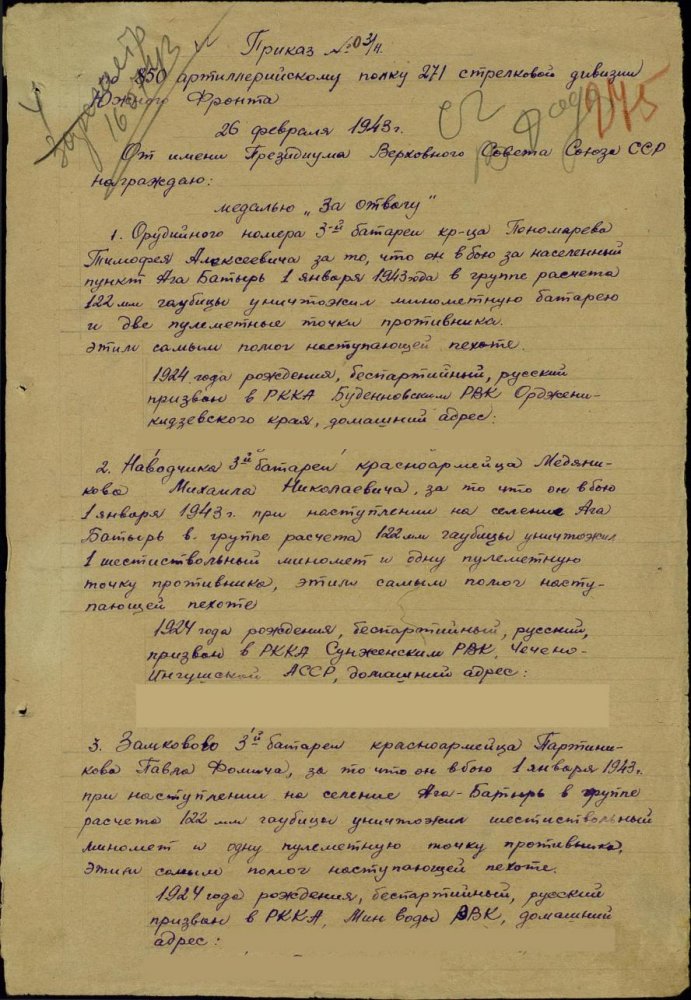 Приказ № 03/н.
по 850 артиллерийскому полку 271 стрелковой дивизии
Южного Фронта
26 февраля 1943г.
От имени Президиума Верховного Совета Союза ССР
награждаю:
медалью „За отвагу"
1. Орудийного номера 3-й батареи кр-ца Пономарева
Тимофея Алексеевича за то, что он в бою за населенный
пункт Ага Батырь 1 января 1943 года в группе расчета
122 мм гаубицы уничтожил минометную батарею
и две пулеметные точки противника.
этим самым помог наступающей пехоте.
1924 года рождения, беспартийный, русский
призван в РККА Буденновским РВК Орджени-
кидзевского края, домашний адрес:
2. Наводчика 3-й батареи красноармейца Медяни-
кова Михаила Николаевича, за то что он в бою
1 января 1943г. при наступлении на селение Ага
Батырь в группе расчета 122 мм гаубицы уничтожил
1 шестиствольный миномет и одну пулеметную
точку противника, этим самым помог насту-
пающей пехоте
1924 года рождения, беспартийный, русский,
призван в РККА Сунженским РВК, Чечено-
Ингушской АССР, домашний адрес:
3. Замкового 3-й батареи красноармейца Партини-
кова Павла Фомича, за то что он в бою 1 января 1943г.
при наступлении на селение Ага-Батырь в группе
расчета 122 мм гаубицы уничтожил шестиствольный
миномет и одну пулеметную точку противника,
этим самым помог наступающей пехоте.
1924 года рождения, беспартийный, русский
призван в РККА, Мин воды РВК, домашний
адрес: